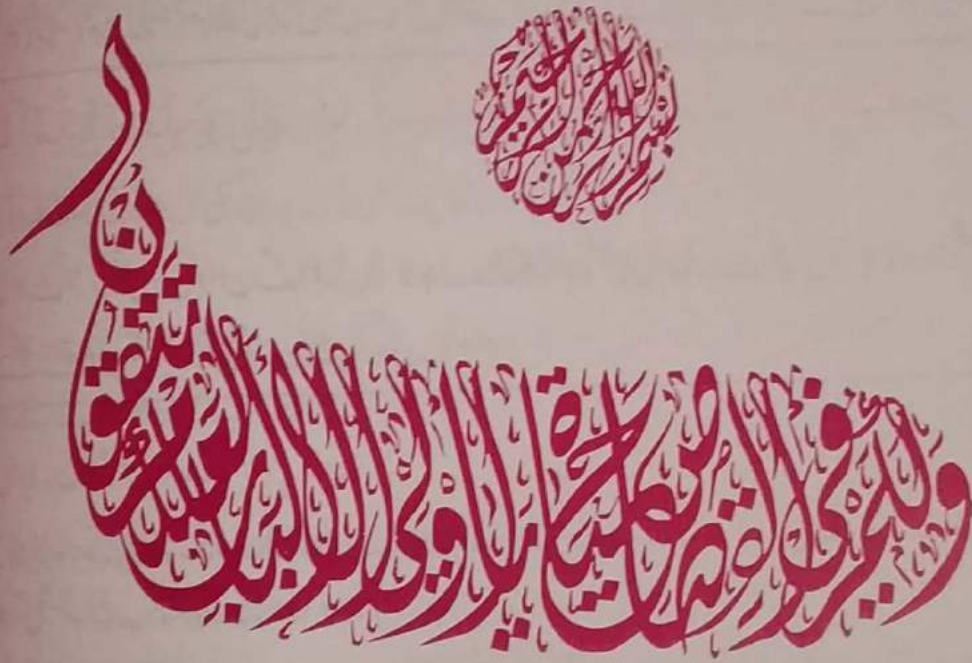 بسم الله الرحمن الرحيم
ولكم في القصاص حياة يا أولي الألباب لعلكم تتقون